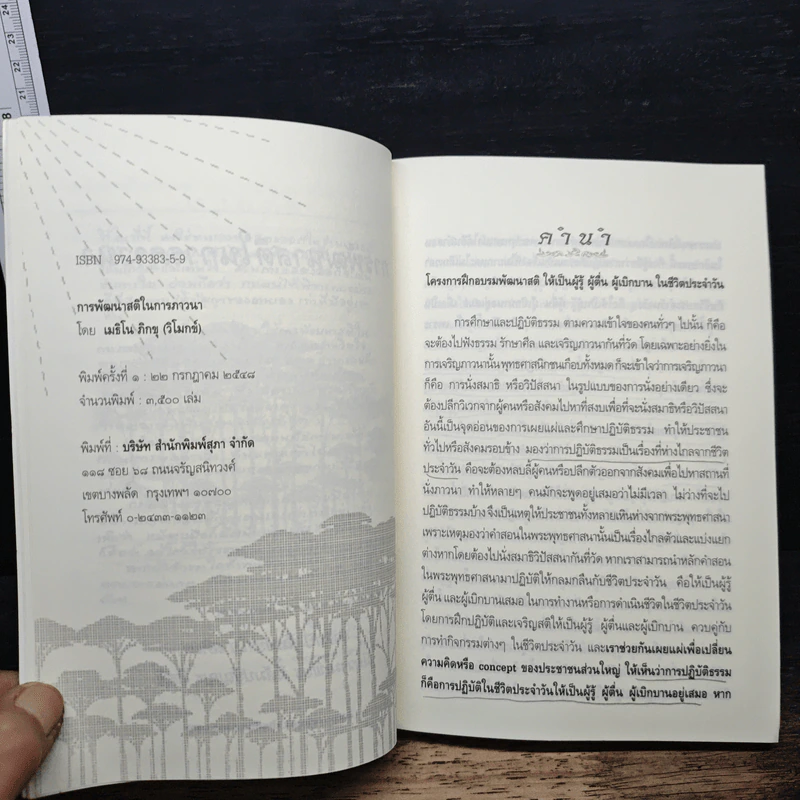 ISBN 974-93383-5-9
การพัฒนาสติในการภาวนา
โดย เมธิโน ภิกขุ (วิโมกข์)
พิมพ์ครั้งที่ ๑ : ๒๒ กรกฎาคม ๒๕๔๘
จำนวนพิมพ์ : ๓,๕๐๐ เล่ม
พิมพ์ที่ : บริษัท สำนักพิมพ์สุภา จำกัด
๑๑๘ ซอย ๖๘ ถนนจรัญสนิทวงศ์
เขตบางพลัด กรุงเทพฯ ๑๐๗๐๐
โทรศัพท์ ๐-๒๔๓๓-๑๑๒๓
คำนำ
โครงการฝึกอบรมพัฒนาสติ ให้เป็นผู้รู้ ผู้ตื่น ผู้เบิกบาน ในชีวิตประจำวัน
การศึกษาและปฏิบัติธรรม ตามความเข้าใจของคนทั่วๆ ไปนั้น ก็คือ
จะต้องไปฟังธรรม รักษาศีล และเจริญภาวนากันที่วัด โดยเฉพาะอย่างยิ่งใน
การเจริญภาวนานั้นพุทธศาสนิกชนเกือบทั้งหมดก็จะเข้าใจว่าการเจริญภาวนา
ก็คือ การนั่งสมาธิ หรือวิปัสสนา ในรูปแบบของการนั่งอย่างเดียว ซึ่งจะ
ต้องปลีกวิเวกจากผู้คนหรือสังคมไปหาที่สงบเพื่อที่จะนั่งสมาธิหรือวิปัสสนา
อันนี้เป็นจุดอ่อนของการเผยแผ่และศึกษาปฏิบัติธรรม ทำให้ประชาชน
ทั่วไปหรือสังคมรอบข้าง มองว่าการปฏิบัติธรรมเป็นเรื่องที่ห่างไกลจากชีวิต
ประจำวัน คือจะต้องหลบลี้ผู้คนหรือปลีกตัวออกจากสังคมเพื่อไปหาสถานที่
นั่งภาวนา ทำให้หลายๆ คนมักจะพูดอยู่เสมอว่าไม่มีเวลา ไม่ว่างที่จะไป
ปฏิบัติธรรมบ้าง จึงเป็นเหตุให้ประชาชนทั้งหลายเหินห่างจากพระพุทธศาสนา
เพราะเหตุมองว่าคำสอนในพระพุทธศาสนานั้นเป็นเรื่องไกลตัวและแบ่งแยก
ต่างหากโดยต้องไปนั่งสมาธิวิปัสสนากันที่วัด หากเราสามารถนำหลักคำสอน
ในพระพุทธศาสนามาปฏิบัติให้กลมกลืนกับชีวิตประจำวัน คือให้เป็นผู้รู้
ผู้ตื่น และผู้เบิกบานเสมอ ในการทำงานหรือการดำเนินชีวิตในชีวิตประจำวัน
โดยการฝึกปฏิบัติและเจริญสติให้เป็นผู้รู้ ผู้ตื่นและผู้เบิกบาน ควบคู่กับ
การทำกิจกรรมต่างๆ ในชีวิตประจำวัน และเราช่วยกันเผยแผ่เพื่อเปลี่ยน
ความคิดหรือ concept ของประชาชนส่วนใหญ่ ให้เห็นว่าการปฏิบัติธรรม
ก็คือการปฏิบัติในชีวิตประจำวันให้เป็นผู้รู้ ผู้ตื่น ผู้เบิกบานอยู่เสมอ หาก